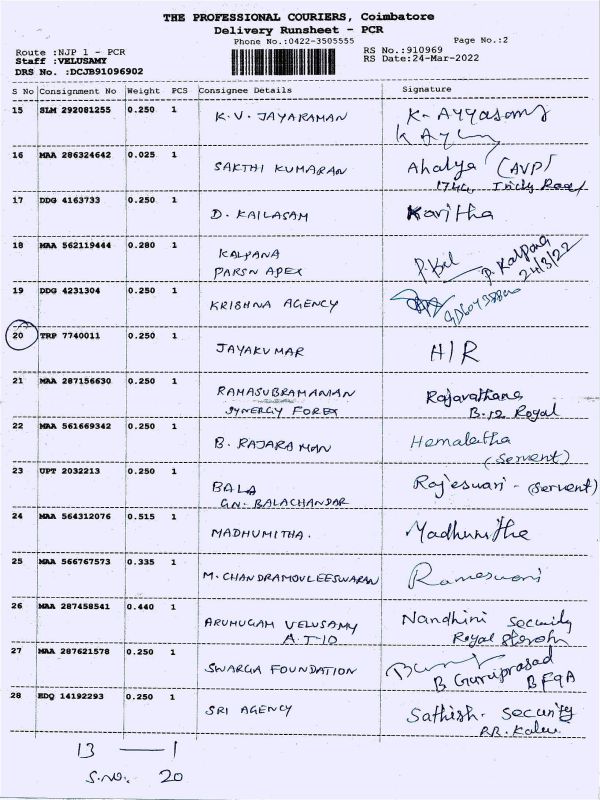 THE PROFESSIONAL COURIERS, Coimbatore
Delivery Runsheet - PCR
Phone No.:0422-3505555
Page No.:2
Route :NJP 1 - PCR
RS No.:910969
Staff :VELUSAMY
RS Date:24-Mar-2022
DRS No. :DCJB91096902
S No Consignment No Weight PCS Consignee Details Signature
15 SLM 292081255 0.250 1 K.V. JAYARAMAN K- Ayyasamy
16 MAA 286324642 0.025 1 SAKTHI KUMARAN Ahalya (AVP)
174G Trichy Road
17 DDG 4163733 0.250 1 D. KAILASAM Kavitha
18 MAA 562119444 0.280 1 KALPANA P. Kalpana
PARSN APEX 24/3/22
19 DDG 4231304 0.250 1 KRISHNA AGENCY
20 TRP 7740011 0.250 1 JAYAKUMAR H/R
21 MAA 287156630 0.250 1 RAMASUBRAMANIAN Rajavathana
SYNERGY FOREX B.12 Royal
22 MAA 561669342 0.250 1 B. RAJARAMAN Hemalatha
(Servent)
23 UPT 2032213 0.250 1 BALA Rajeswari - (Servent)
G.N. BALACHANDAR
24 MAA 564312076 0.515 1 MADHUMITHA. Madhumitha
25 MAA 566767573 0.335 1 M. CHANDRAMOULEESWARAN Rameswari
26 MAA 287458541 0.440 1 ARUMUGAM VELUSAMY Nandhini Security
A.T-10 Royal
27 MAA 287621578 0.250 1 SWARGA FOUNDATION B. Guruprasad
BF9A
28 EDQ 14192293 0.250 1 SRI AGENCY Sathish. Security
13 — 1
S.No. 20